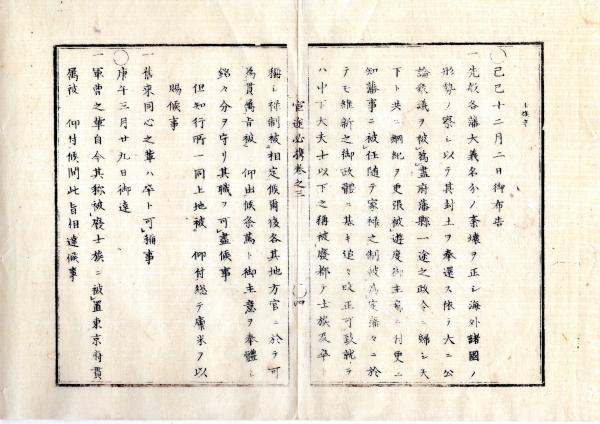 己巳十二月二日御布告
一先般各藩大義名分ノ紊壊ヲ正シ海外諸國ノ
形勢ノ察シ以テ其封土ヲ奉還ス依テ大ニ公
論衆議ヲ被爲盡府藩縣一途之政令ニ歸シ天
下ト共ニ綱紀ヲ更張被遊度御主意ニ付更ニ
知藩事ニ被任隨テ家禄之制被爲定藩々ニ於
テモ維新之御政體ニ基キ追々改正可致就テ
ハ中下大夫士以下之稱被廢都テ士族及卒ト
官途必携巻之三
四
稱シ禄制被相定候爾後各其地方官ニ於テ可
爲貫屬旨被仰出候条篤ト御主意ヲ奉體シ
銘々分ヲ守リ其職ヲ可盡候事
但知行所一同上地被仰付総テ廩米ヲ以
賜候事
一舊來同心之輩ハ卒ト可稱事
庚午三月廿九日御達
一軍曹之輩自今其称被廢士族ニ被置東京府貫
屬被仰付候間此旨相達候事